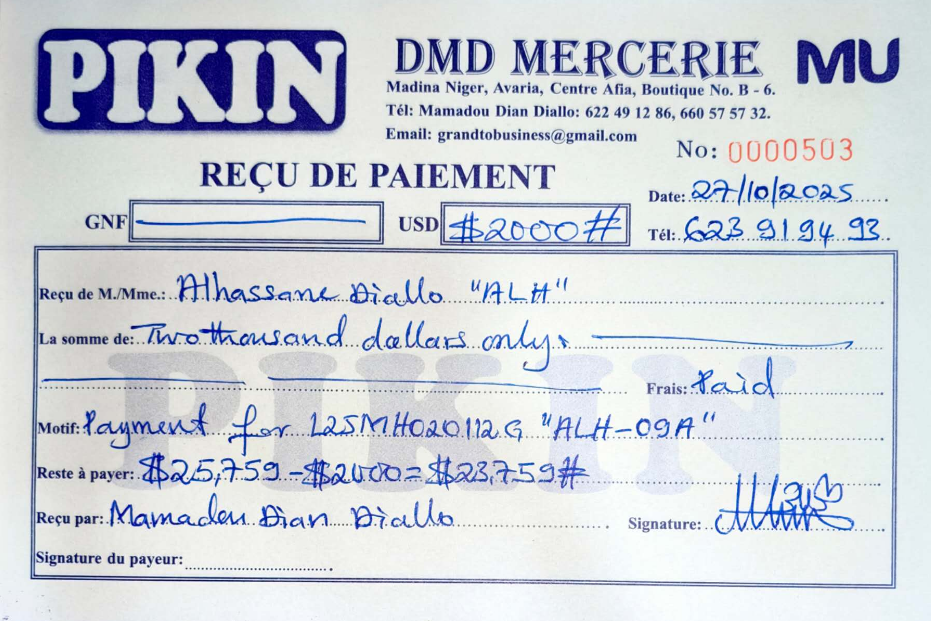 PIKIN
DMD MERCERIE
MU
Madina Niger, Avaria, Centre Afia, Boutique No. B - 6.
Tél: Mamadou Dian Diallo: 622 49 12 86, 660 57 57 32.
Email: grandtobusiness@gmail.com
No: 0000503
REÇU DE PAIEMENT
Date: 27/10/2025
GNF
USD $2000#
Tél: 623 91 94 93
Reçu de M./Mme.: Alhassane Diallo "ALH"
La somme de: Two thousand dollars only.
Frais: Paid
PIKIN
Motif: Payment for L25MH020112G "ALH-09A"
Reste à payer: $25,759 - $2000 = $23,759#
Reçu par: Mamadou Dian Diallo
Signature:
Signature du payeur: